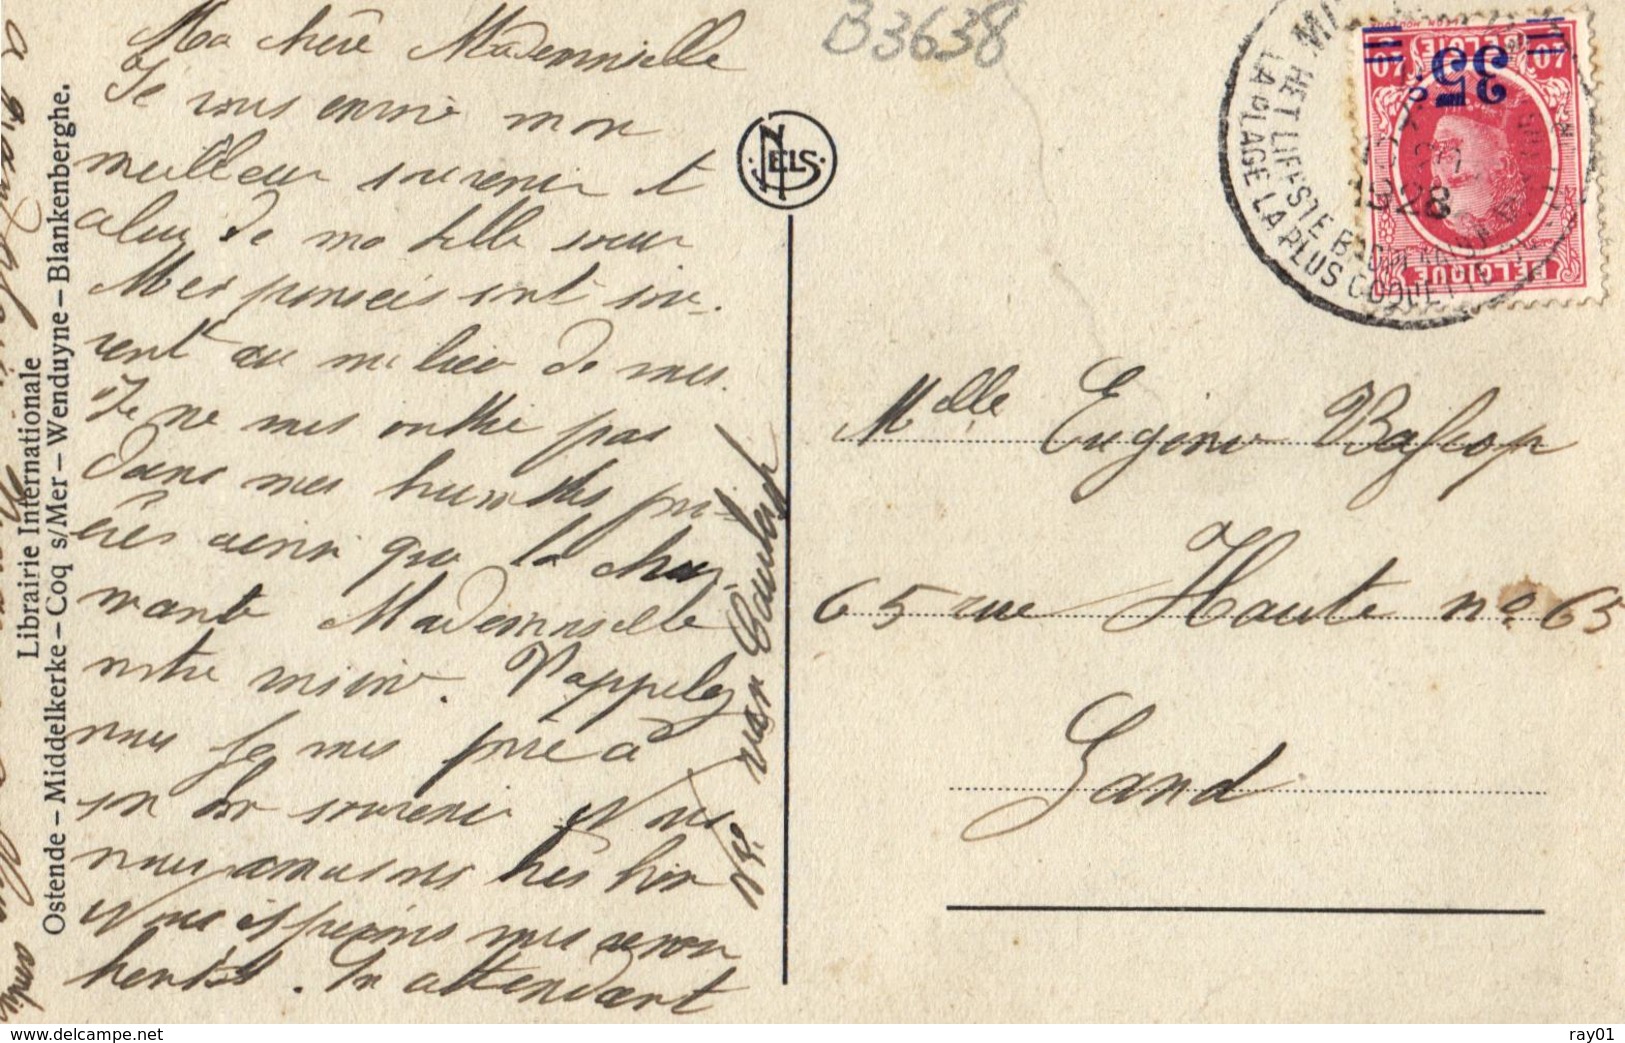 B3638
Ma chère Mademoiselle
Je vous envoie mon
meilleur souvenir et
celui de ma belle soeur
Mes pensées sont sou-
vent au milieu de vous.
Je ne vous oublie pas
dans mes humbles pri-
ères ainsi que la char-
mante Mademoiselle
notre amie. Rappelez
nous je vous prie à
son bon souvenir Nous
nous amusons très bien
Nous espérons vous
En attendant
Ve. van
Librairie Internationale
Ostende – Middelkerke – Coq s/Mer – Wenduyne – Blankenberghe.
NELS
HET LIEFSTE BAD
LA PLAGE LA PLUS COQUETTE
1928
BELGIE
35
BELGIQUE
Mlle Eugénie
65 rue Haute no. 65
Gand
ray01